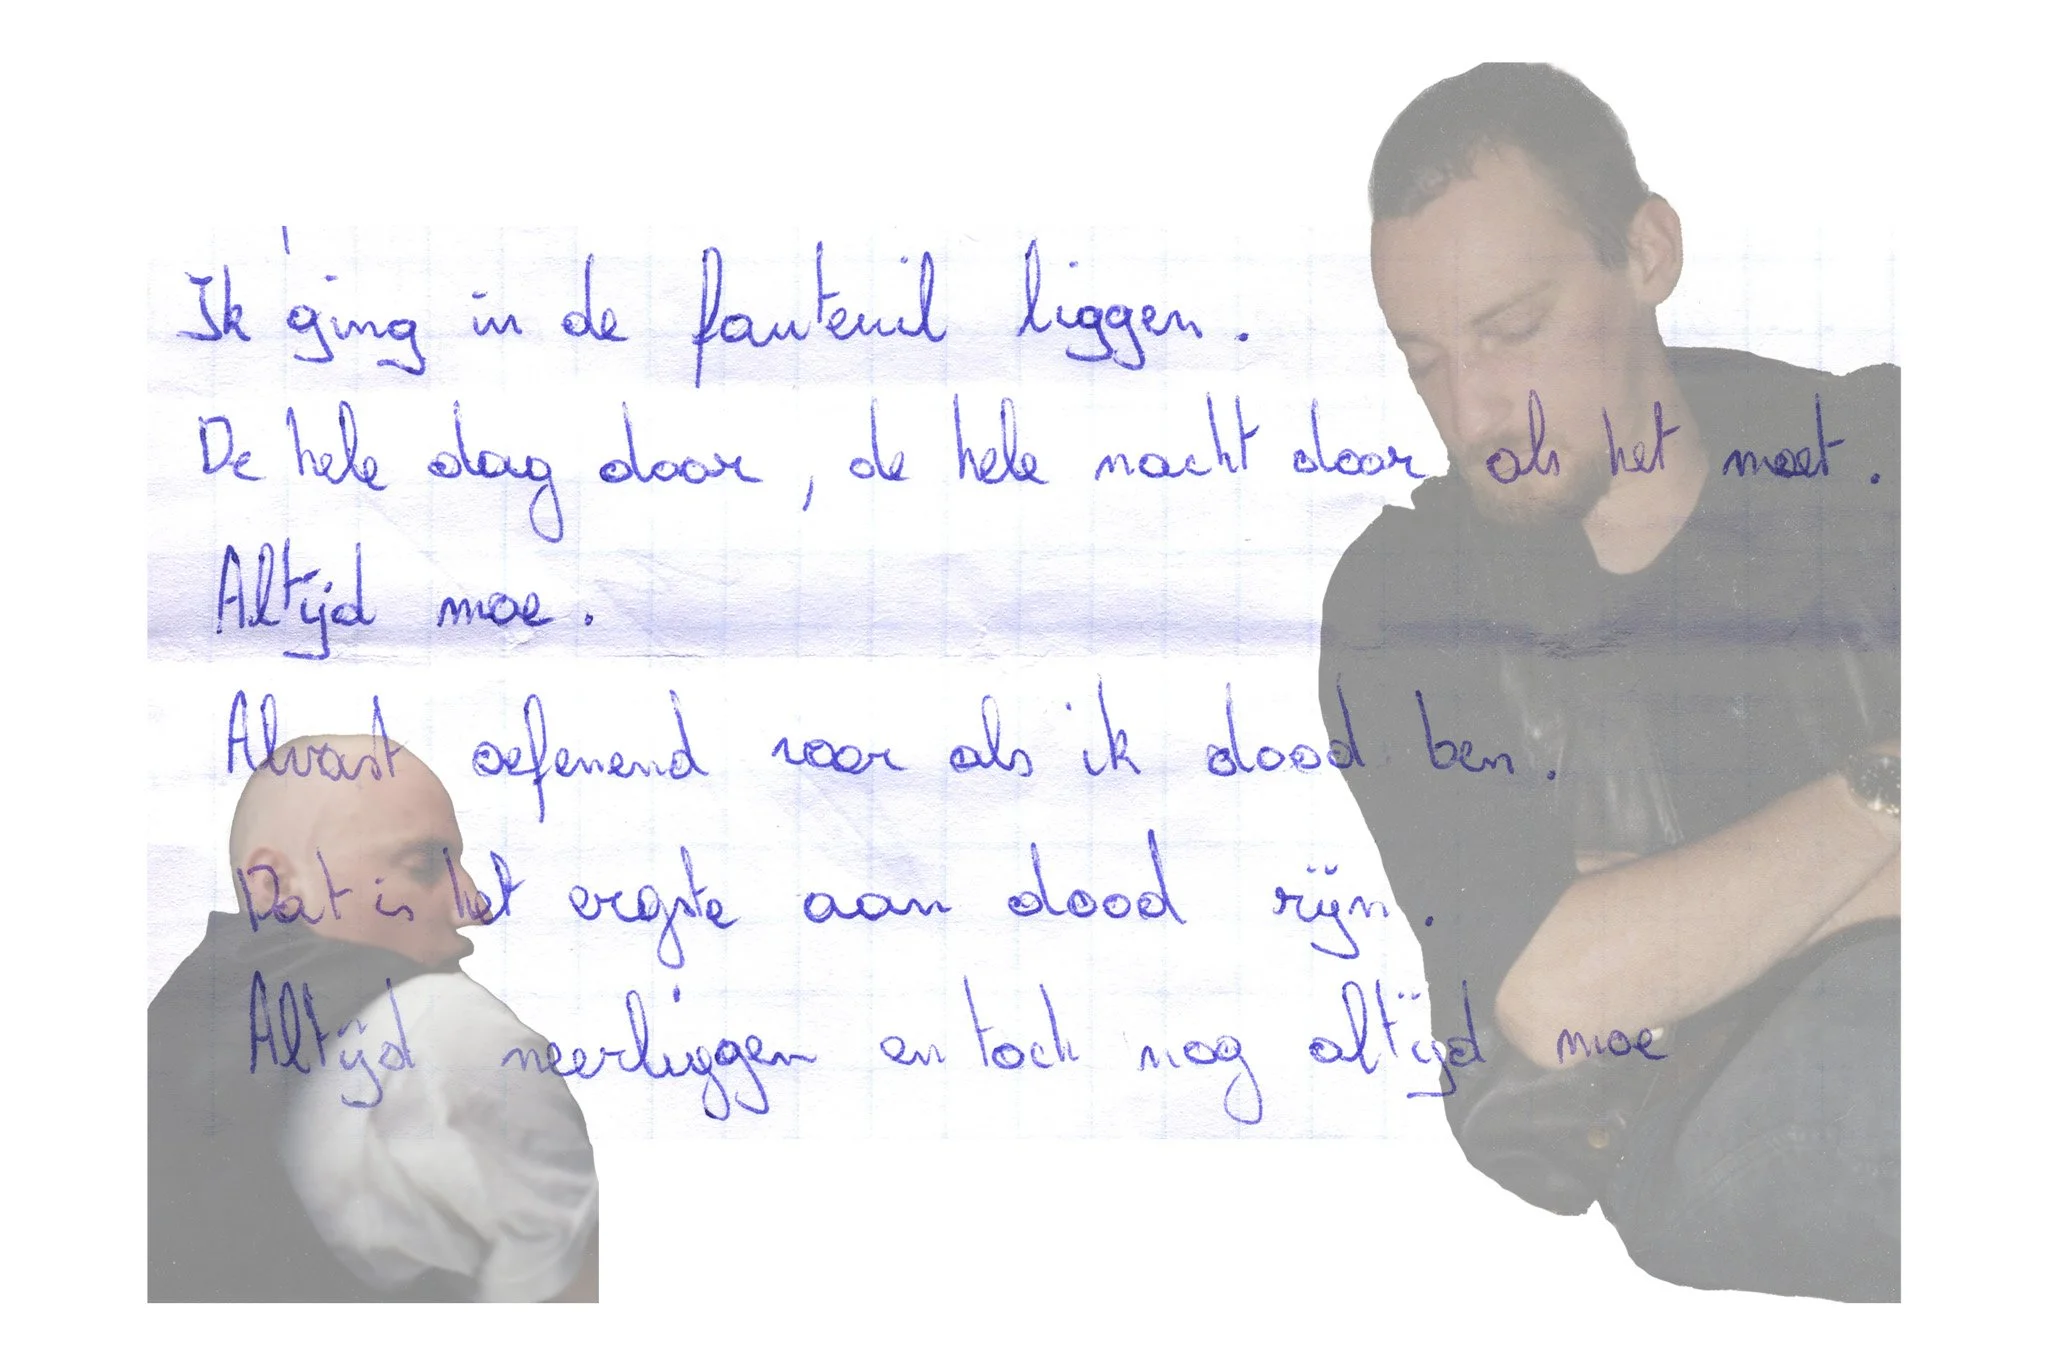 Ik ging in de fauteuil liggen.
De hele dag door, de hele nacht door als het moet.
Altijd moe.
Alvast oefenend voor als ik dood ben.
Dat is het ergste aan dood zijn.
Altijd neerliggen en toch nog altijd moe